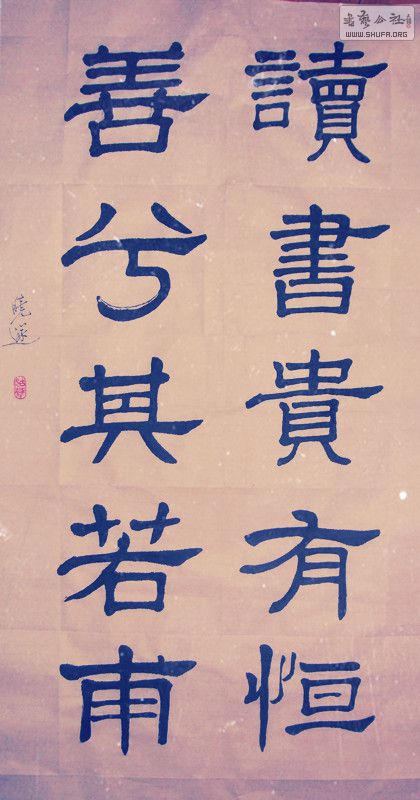 讀書貴有恒
善兮其若甫
曉遂
書藝公社
WWW.SHUFA.ORG